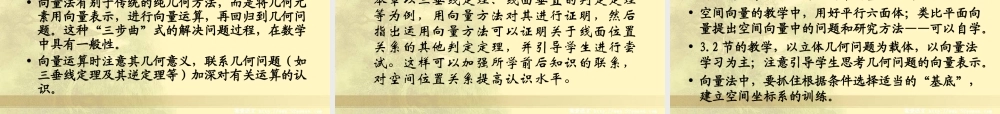 向量法有别于传统的纯几何方法，而是将几何元
素用向量表示，进行向量运算，再回归到几何问
题。这种“三步曲”式的解决问题过程，在数学
中具有一般性。
• 向量运算时注意其几何意义，联系几何问题（如
三垂线定理及其逆定理等）加深对有关运算的认
识。
等为例，用向量方法对其进行证明，然后
指出运用向量方法可以证明关于线面位置
关系的其他判定定理，并引导学生进行尝
试。这样可以加强所学前后知识的联系，
对空间位置关系提高认识水平。
• 空间向量的教学中，用好平行六面体；类比平面向
量提出空间向量中的问题和研究方法——可以自学。
• 3.2 节的教学，以立体几何问题为载体，以向量法
学习为主；注意引导学生思考几何问题的向量表示。
• 向量法中，要抓住根据条件选择适当的“基底”，
建立空间坐标系的训练。